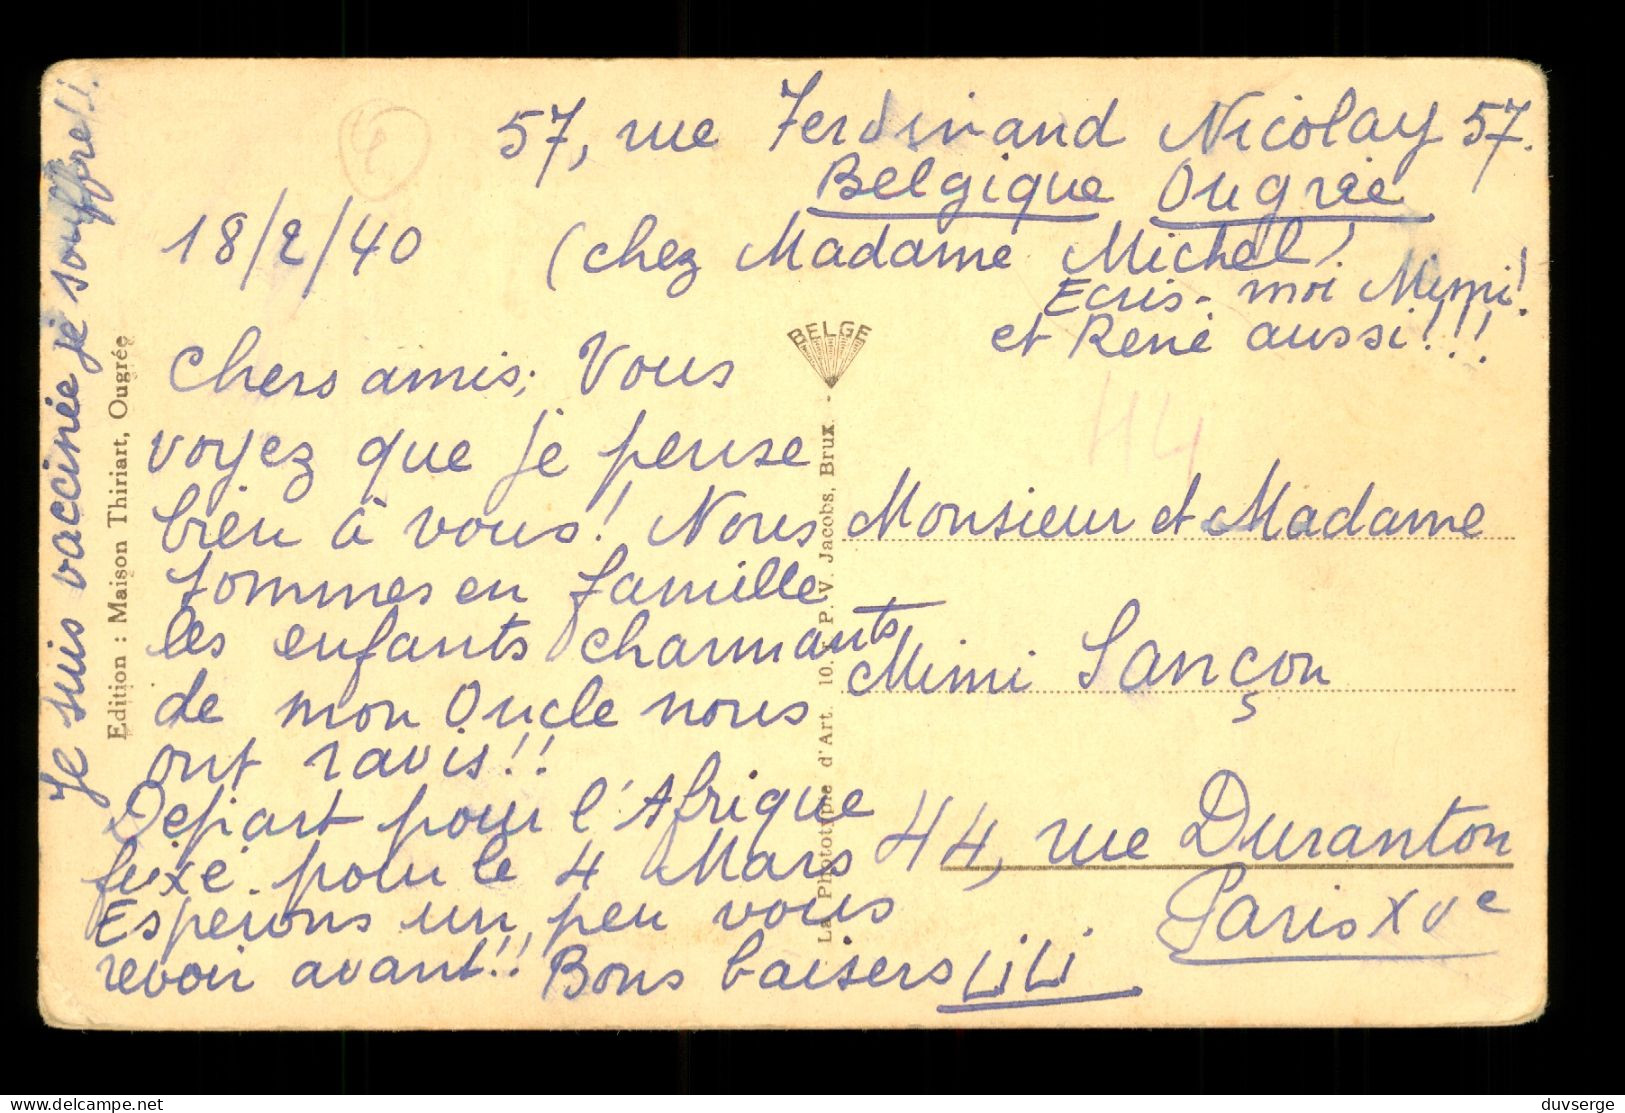 57, rue Ferdinand Nicolay 57.
Belgique Ougrée
18/2/40 (chez Madame Michel)
Ecris-moi Mimi!
et René aussi!!!
Chers amis; Vous
voyez que je pense
bien à vous! Nous
sommes en famille
les enfants charmants
de mon Oncle nous
ont ravis!!
Départ pour l'Afrique
fixé pour le 4 Mars
Esperons un peu vous
revoir avant!! Bons baisers LiLi
Je suis vaccinée je souffre!!
Edition : Maison Thiriart, Ougrée
BELGE
La Phototypie d'Art. 10. P. V. Jacobs, Brux. -
44
Monsieur et Madame
Mimi Sançon
44, rue Duranton
Paris XVe
delcampe.net
duvserge